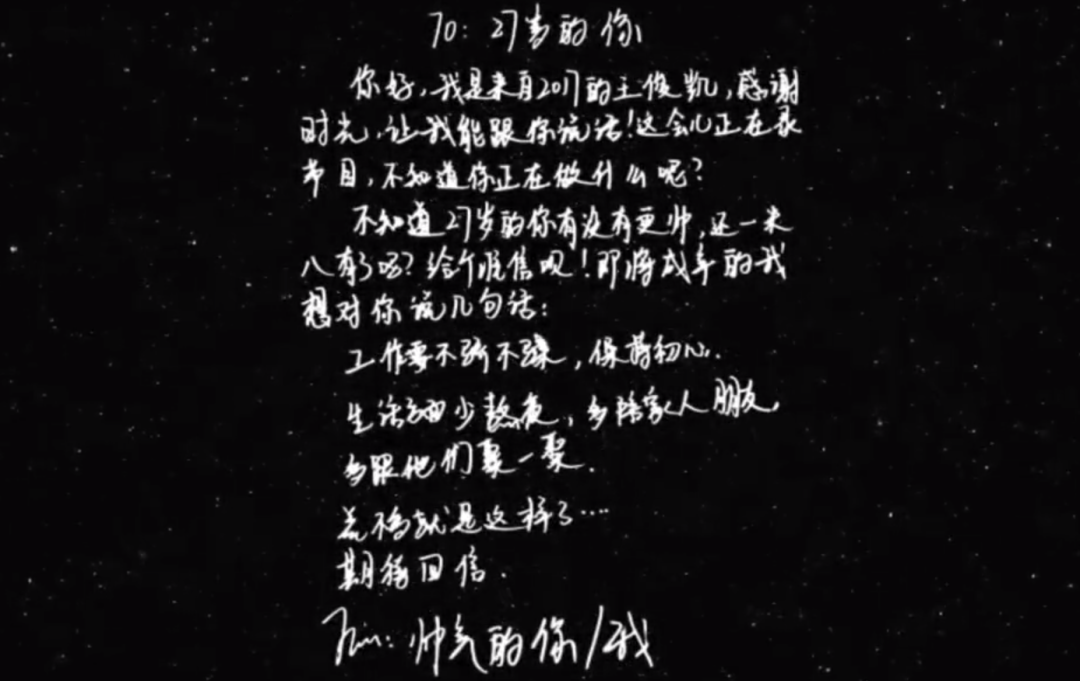 TO: 27岁的你
你好,我是来自2017的王俊凯,感谢
时光,让我能跟你说话!这会儿正在录
节目,不知道你正在做什么呢?
不知道27岁的你有没有更帅,还一米
八有了吧?给个准信呗!即将成年的我
想对你说几句话:
工作要不骄不躁,保持初心.
生活要少熬夜,多陪家人朋友,
多跟他们聚一聚.
差不多就是这样了····
期待回信.
From: 帅气的你/我